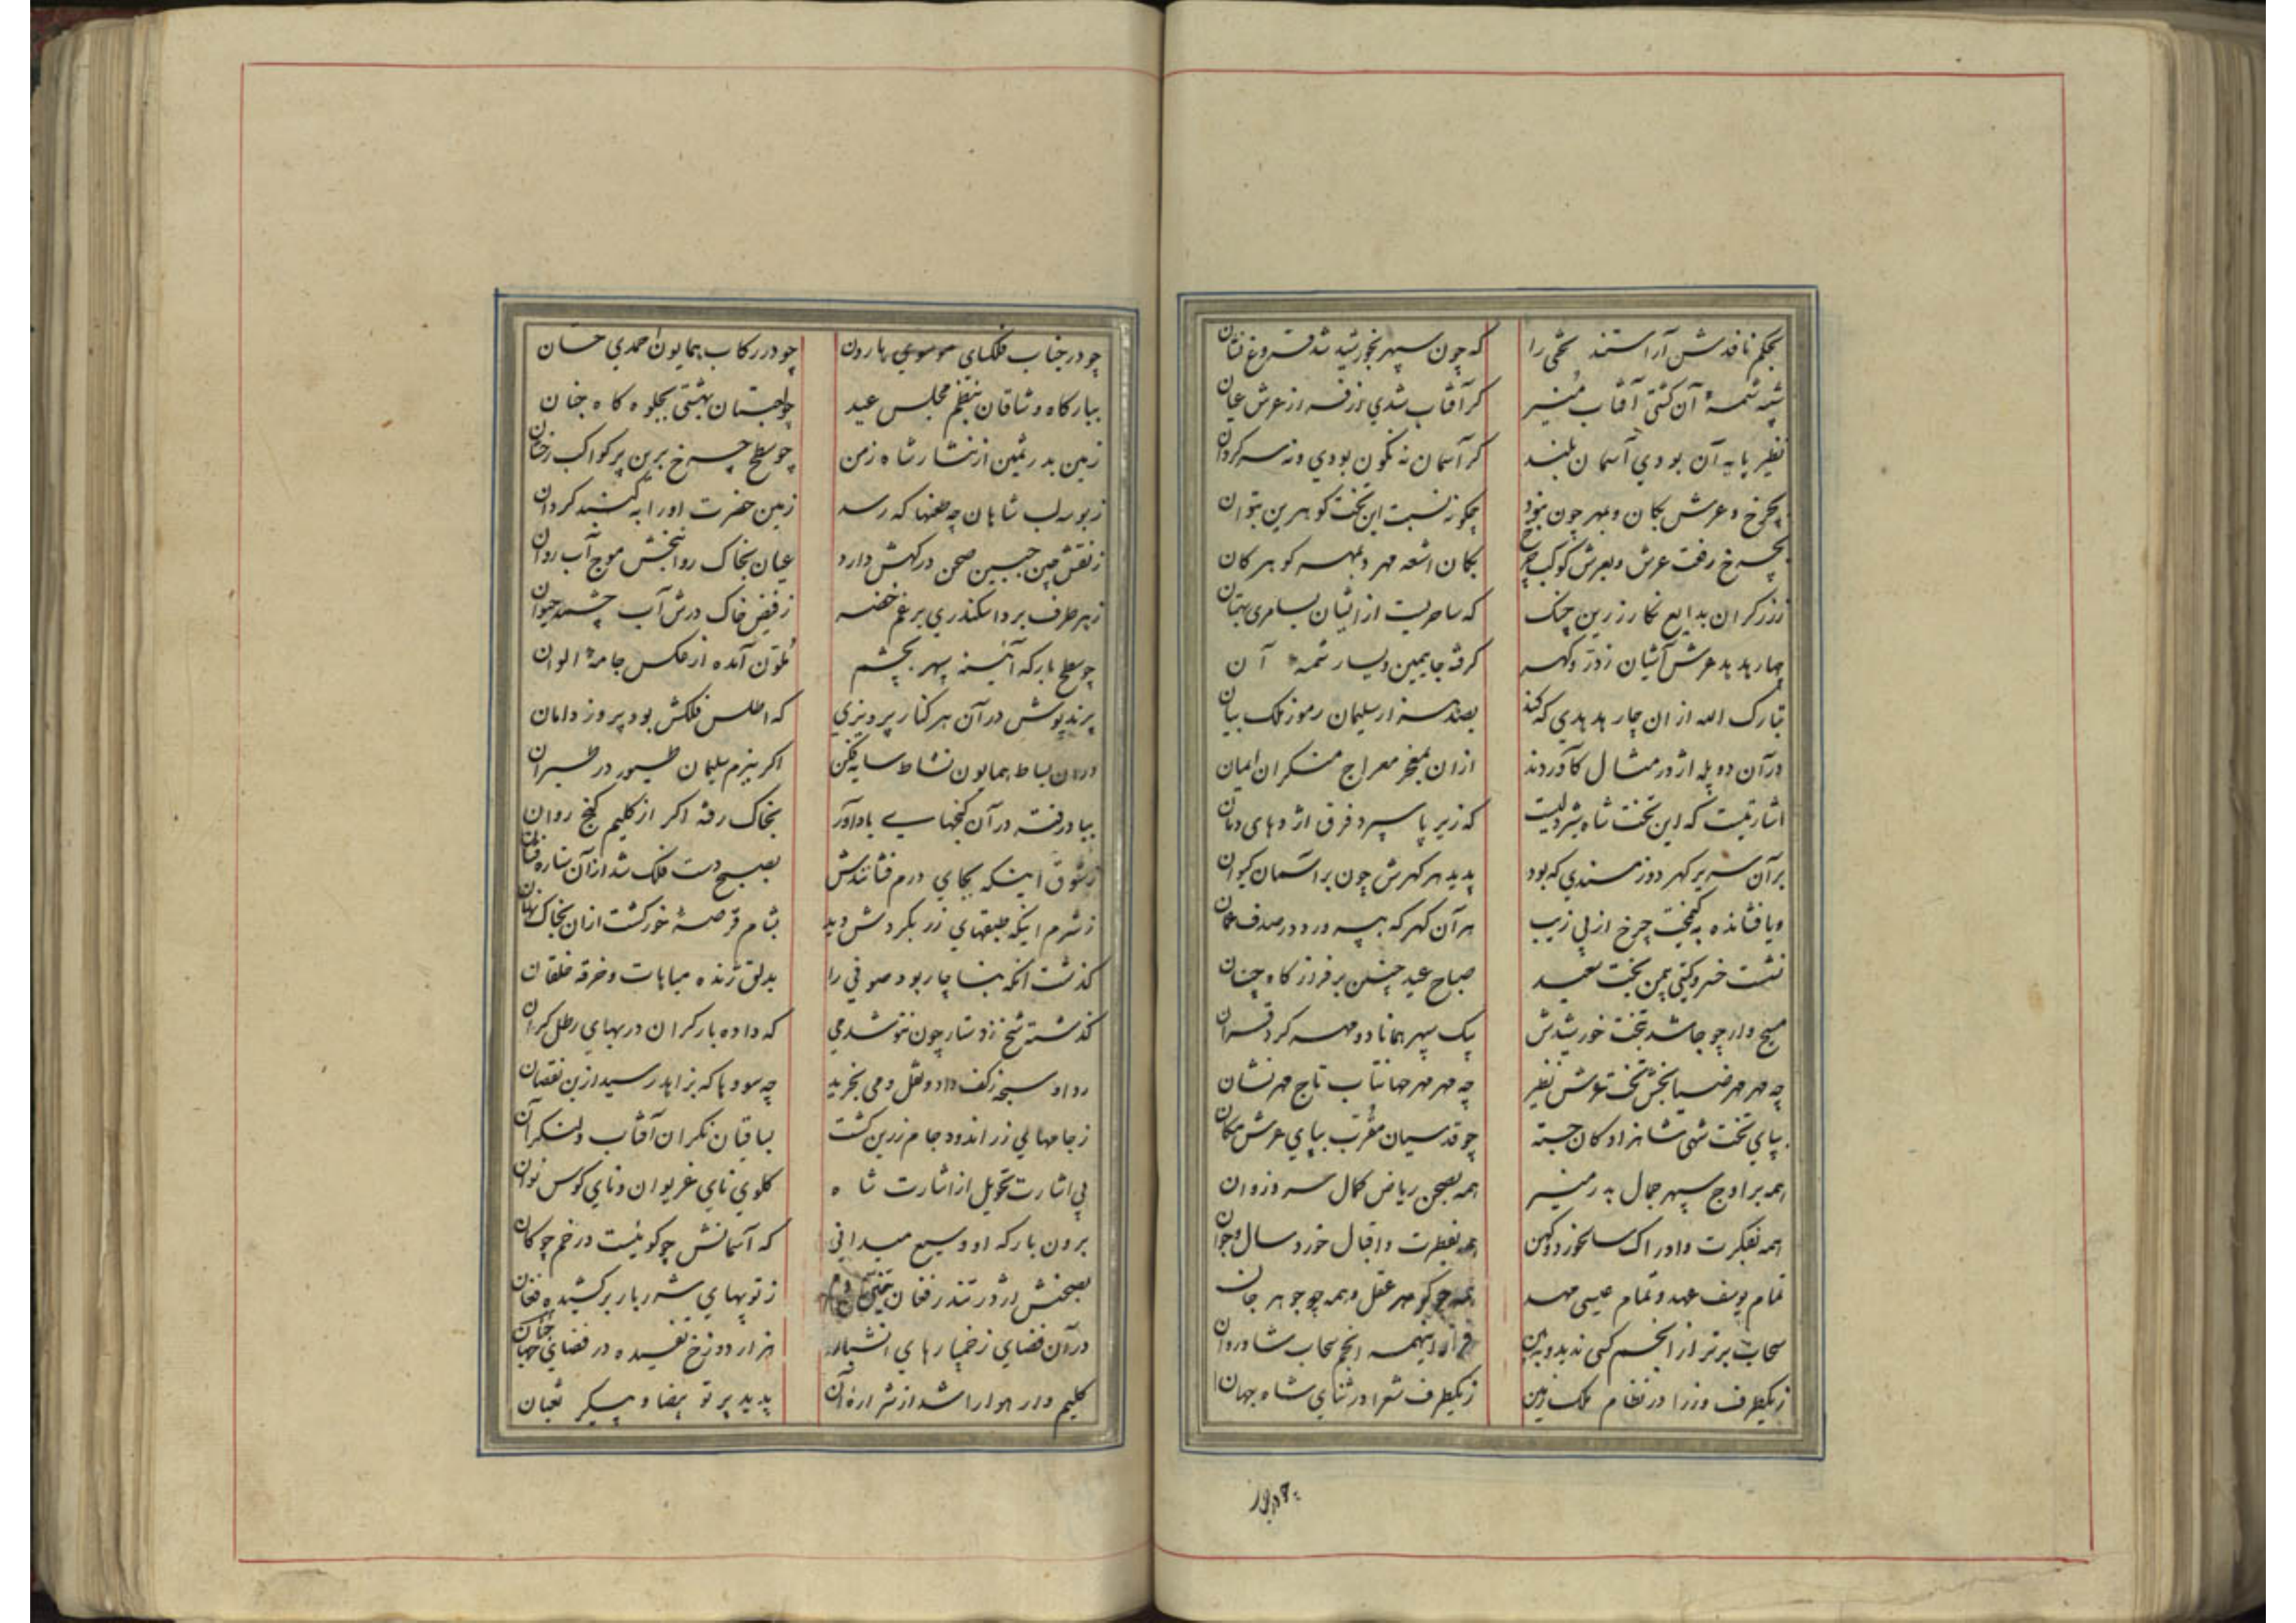 بحکم نافذش آراستند تختی را که چون سپهر بخورشید شد فروغ فشان
شبیه شمسهٔ آن کشتی آفتاب منیر کر آفتاب شدی زرفسه از عرش عیان
نظیر پایه آن بودی آسمان بلند کر آسمان نه نکون بودی و نه سرکردان
بچرخ و عرش بکان و ببهر چون نبود چکونه نسبت این تخت کوهرین بتوان
بچرخ رفت عرش و بعرش کوکب چرخ بکان اشعه مهر و ببهر کوهر کان
ززرکران بدایع نکار زرین چنک که ساحریست از ایشان بسامری بهتان
چهار هدهد عرش آشیان ز در و کهر کرفته جا بیمین و یسار شمسهٔ آن
تبارک الله از ان چار هدهدی که کند بصد هزار سلیمان رموز ملک بیان
در آن دو پله اژدر مثال کآوردند ازان بمفخر معراج منکران ایمان
اشارتیست که این تخت شاه شیردلیست که زیر پا سپرد فرق اژدهای دمان
بر آن سریر کهر دوز مسندی که بود پدید هر کهرش چون بر آسمان کیوان
ویا فشانده به کیمخت چرخ از پی زیب هر آن کهر که بپرورد در صدف عمان
نشست خسرو کیتی بیمن بخت سعید صباح عید چنین برفرازکاه چنان
مسیح وار چو جا شد بتخت خورشیدش بیک سپهر همانا دو مهر کرد قران
چه مهر مهر ضیا بخش تخت عرش نظیر چه مهر مهر جهانتاب تاج مهر نشان
بپای تخت شهی شاهزادکان جسته چو قدسیان مقرب بپای عرش مکان
همه بر اوج سپهر جمال بدر منیر همه بصحن ریاض کمال سرو روان
همه بفکرت و ادراک سالخورد و کهن همه بفطرت و اقبال خورد سال و جوان
تمام یوسف عهد و تمام عیسی مهد همه چو کوهر عقل و همه چو جوهر جان
سحاب برتر از انجم کسی ندیده ببین فراز اینهمه انجم سحاب شادروان
زیکطرف وزرا در نظام ملک زمین زیکطرف شعرا در ثنای شاه جهان
چو در جناب فلکسای موسوی هارون چو در رکاب همایون احمدی حسان
ببارکاه وشاقان بنظم مجلس عید چو لعبتان بهشتی بجلوه کاه جنان
زمین بدر ثمین از نثار شاه زمن چو سطح چرخ برین پر کواکب رخشان
زبوسه لب شاهان چه طعنها که رسد زمین حضرت او را به کنبد کردان
ز نقش چین جبین صحن درکهش دارد عیان بخاک روانبخش موج آب روان
زهر طرف برد اسکندری برغم خضر زفیض خاک درش آب چشمه حیوان
چو سطح بارکه آئینه سپهر بچشم ملون آمده از عکس جامهٔ الوان
پرند پوش در آن هر کنار پرویزی که اطلس فلکش بود پروز دامان
دران بساط همایون نشاط سایه فکن اکر ببزم سلیمان طیور در طیران
بباد رفته در آن کنجهایی باد آور بخاک رفته اکر از کلیم کنج روان
زشوق اینکه بجای درم فشانندش بصبح دست فلک شد از آن ستاره فشان
ز شرم اینکه طبقهای زر بکردش دید بشام قرصهٔ خور کشت ازان بخاک نهان
کذشت انکه بناچار بود صوفی را بدلق ژنده مباهات و خرقه خلقان
کذشته شیخ ز دستار چون ننوشد می که داده بار کران در بهای رطل کران
ردا و سبحه زکف داد و نقل و می بخرید چه سودها که بزاهد رسید ازین نقصان
ز جامهایی زر اندود جام زرین کشت بساقیان نکران آفتاب و لنکر آن
پی اشارت تحویل از اشارت شاه کلوی نای غریوان و نای کوس نوان
برون بارکه او وسیع میدانی که آسمانش چو کوئیست در خم چوکان
بصحنش اژدر تندر فغان ز توپهای شرربار بر کشیده فغان
در آن فضای زخمپارهای آتشبار هزار دوزخ تفسیده در فضای جهان
کلیم وار هوا را شد از شرارهٔ آن پدید پرتو بیضا و پیکر ثعبان